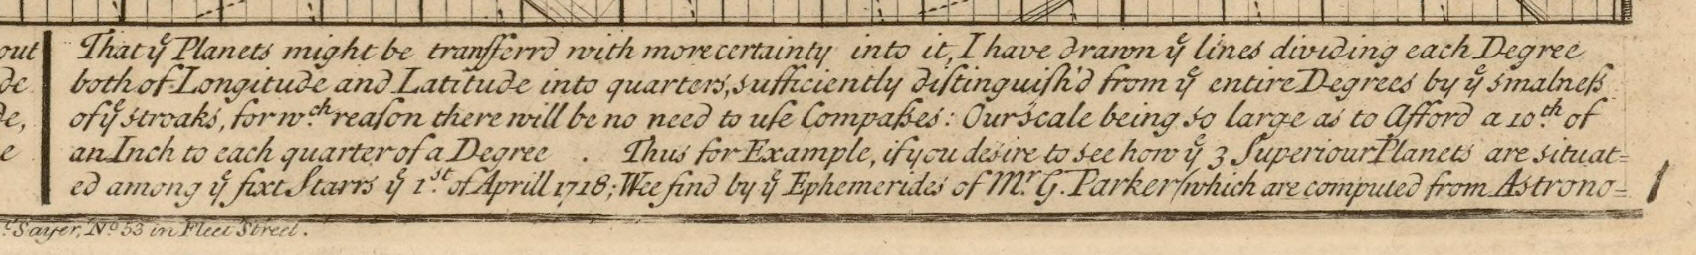 out
de
de,
e
That yͤ Planets might be transferrd with more certainty into it, I have drawn yͤ lines dividing each Degree
both of Longitude and Latitude into quarters, sufficiently distinguish'd from yͤ entire Degrees by yͤ smalneſs
of yͤ stroaks, for wᶜʰ reaſon there will be no need to uſe Compaſses: Our Scale being so large as to Afford a 10ᵗʰ of
an Inch to each quarter of a Degree . Thus for Example, if you desire to see how yͤ 3 Superiour Planets are situat=
ed among yͤ fixt Starrs yͤ 1ˢᵗ of Aprill 1718; Wee find by yͤ Ephemerides of Mʳ G. Parker (which are computed from Astrono=
ᵗ Sayer, Nᵒ 53 in Fleet Street.